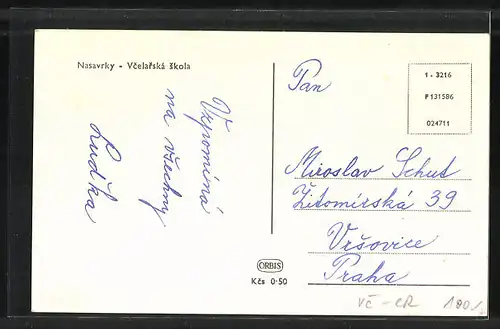 Nasavrky - Včelařská škola
Vzpomíná
na všechny
Luďka
ORBIS
Kčs 0·50
Pan
1 - 3216
P 131586
024711
Miroslav Schut
Žitomírská 39
Vršovice
Praha
VČ - ČR